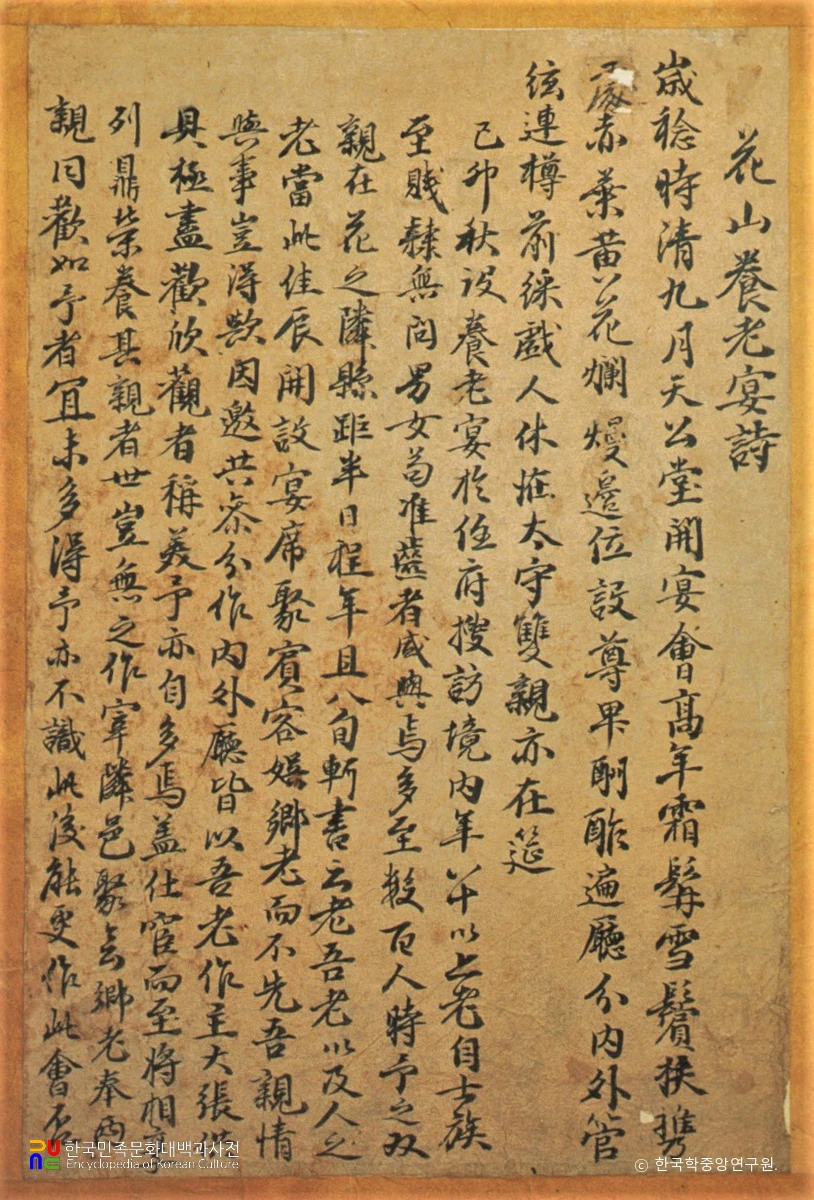 花山養老宴詩
歲稔時清九月天公堂開宴會高年霜髯雪鬢扶攜
處赤葉黃花爛熳邊位設尊卑酬酢遍廳分內外管
絃連樽前綵戲人休怪太守雙親亦在筵
己卯秋設養老宴於任府搜訪境內年八十以上老自士族
至賤隸無問男女苟准齡者咸與焉多至數百人時予之双
親在花之隣縣距半日程年且八旬書云老吾老以及人之
老當此佳辰開設宴席聚賓客娛鄉老而不先吾親情
與事豈得歟因邀共參分作內外廳皆以吾老作主大張供
具極盡歡欣觀者稱美予亦自多焉盖仕宦而至將相享
列鼎榮養其親者世豈無之作宰隣邑聚會鄉老奉兩
親同歡如予者宜未多得予亦不識此後能更作此會否
한국민족문화대백과사전
Encyclopedia of Korean Culture
© 한국학중앙연구원.